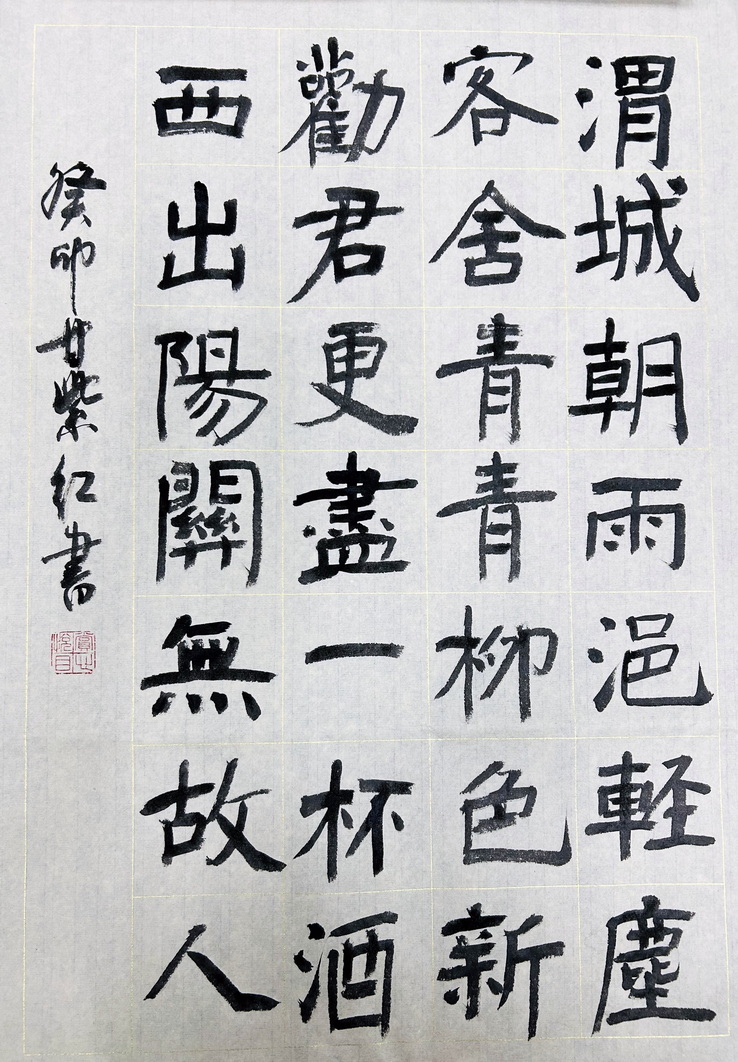 渭城朝雨浥軽塵
客舍青青柳色新
勸君更盡一杯酒
西出陽關無故人
癸卯甘紫红書